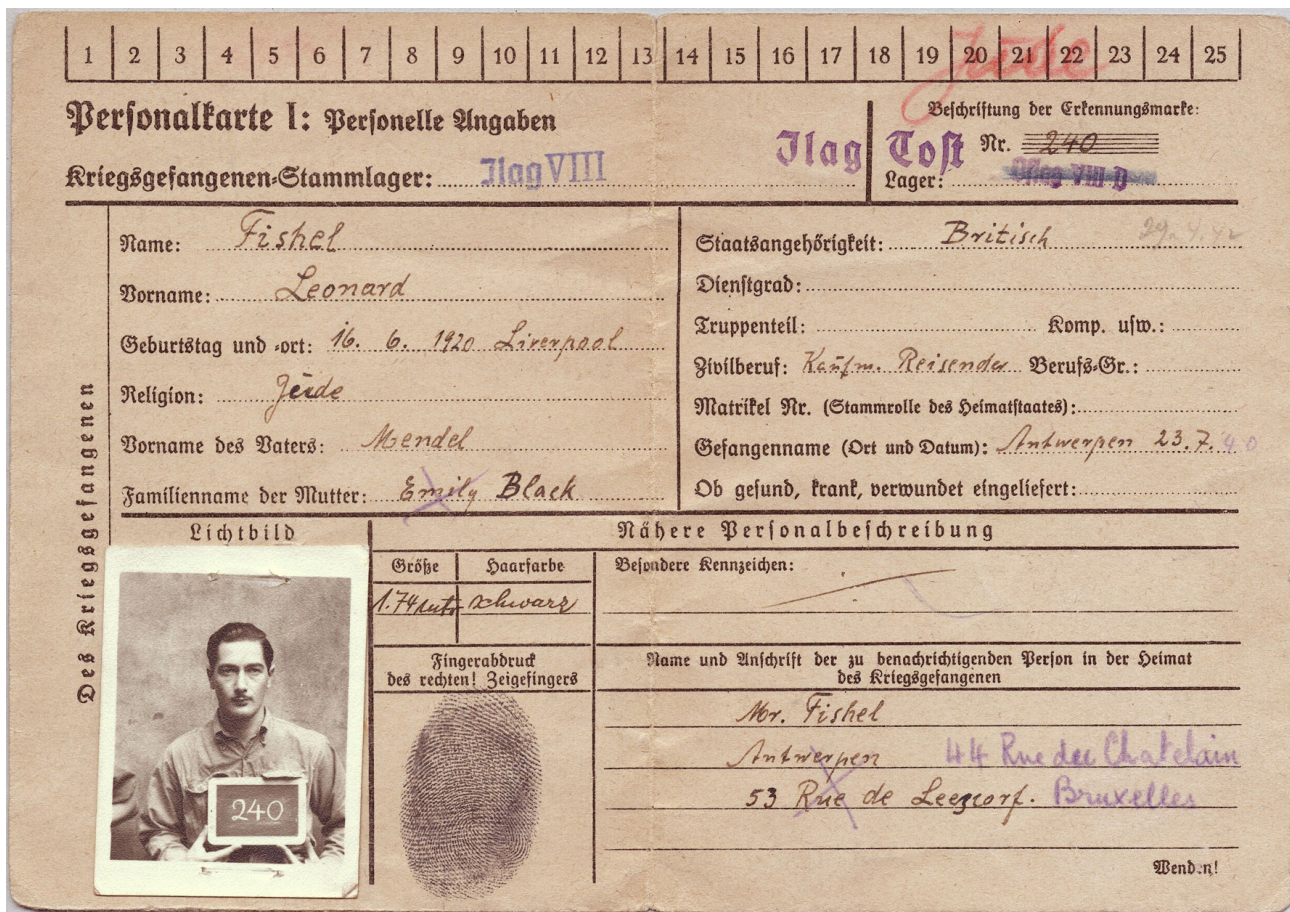 1 2 3 4 5 6 7 8 9 10 11 12 13 14 15 16 17 18 19 20 21 22 23 24 25
Jude
Personalkarte I: Personelle Angaben
Beschriftung der Erkennungsmarke:
Ilag Tost Nr. 240
Kriegsgefangenen-Stammlager: Ilag VIII
Lager: Oflag VIII D
Des Kriegsgefangenen
Name: Fishel
Vorname: Leonard
Geburtstag und -ort: 16. 6. 1920 Liverpool
Religion: Jude
Vorname des Vaters: Mendel
Familienname der Mutter: Emily Black
Staatsangehörigkeit: Britisch 29.4.42
Dienstgrad:
Truppenteil: Komp. usw.:
Zivilberuf: Kaufm. Reisender Berufs-Gr.:
Matrikel Nr. (Stammrolle des Heimatstaates):
Gefangenname (Ort und Datum): Antwerpen 23.7.'40
Ob gesund, krank, verwundet eingeliefert:
Lichtbild
240
Nähere Personalbeschreibung
Größe Haarfarbe
1.74 schwarz
Besondere Kennzeichen:
Fingerabdruck
des rechten! Zeigefingers
Name und Anschrift der zu benachrichtigenden Person in der Heimat
des Kriegsgefangenen
Mr. Fishel
Antwerpen 44 Rue du Chatelain
53 Rue de Bruxelles
Wenden!